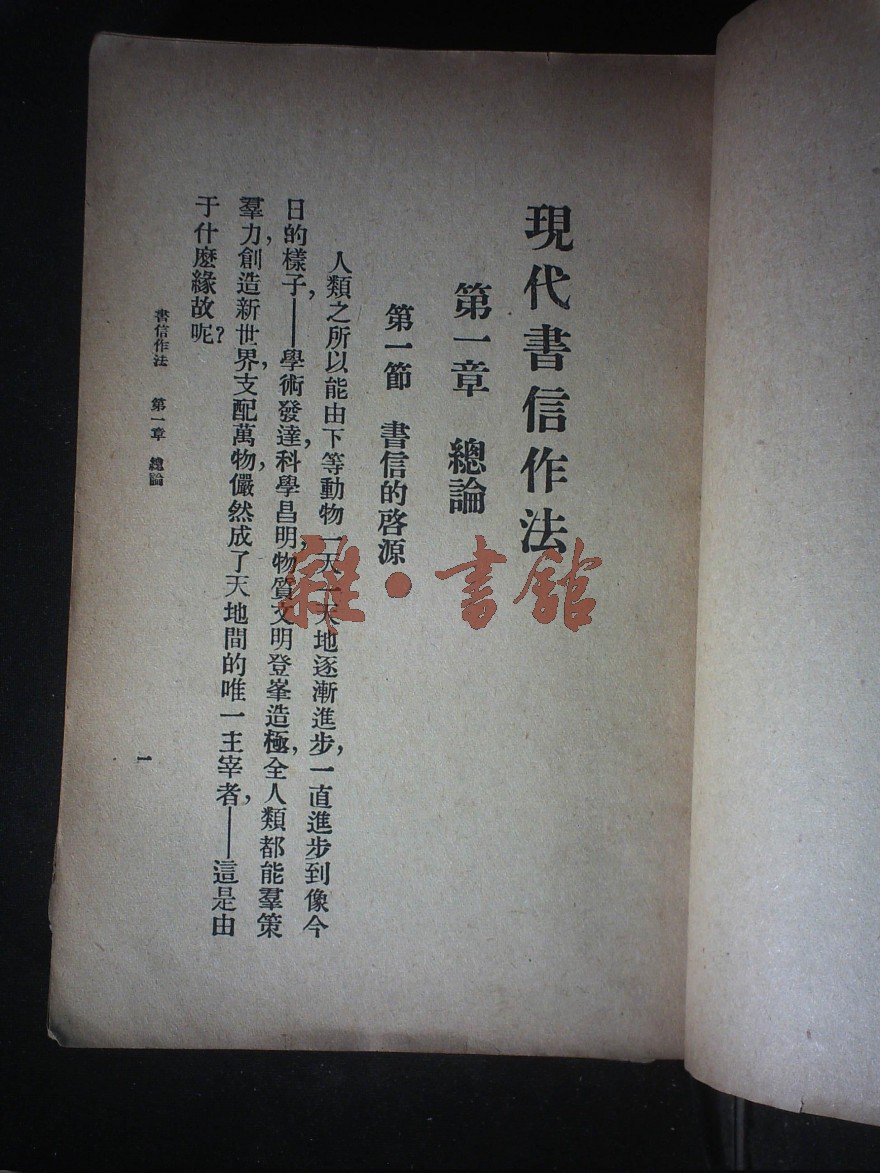 現代書信作法
第一章　總論
第一節　書信的啓源
人類之所以能由下等動物一天一天地逐漸進步，一直進步到像今
日的樣子，——學術發達，科學昌明，物質文明登峯造極，全人類都能羣策
羣力，創造新世界，支配萬物，儼然成了天地間的唯一主宰者，——這是由
于什麼緣故呢？
書信作法　第一章　總論
一
雜·書館